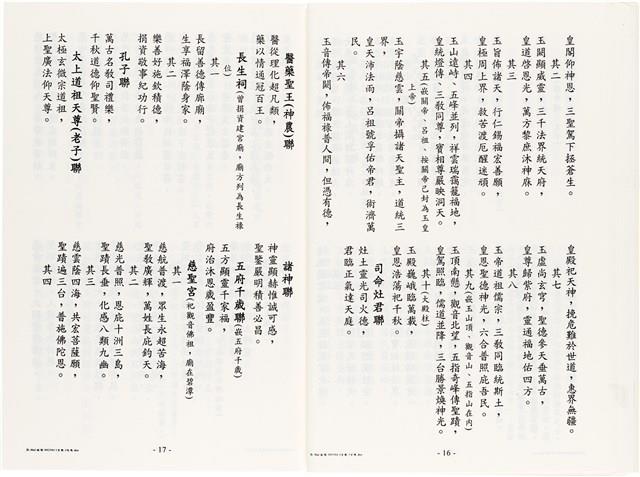 皇閣仰神恩，三聖駕下拯蒼生。
其二
玉闕顯威靈，三千法界統天府，
皇道啓恩光，萬方黎庶沐神庥。
其三
玉旨佈諸天，行仁錫福宏善願，
皇極周上界，救苦渡厄醒迷頑。
其四
玉山遠峙，五峰並列，祥雲瑞靄籠福地，
皇統燈傳，三教同尊，寶相尊嚴映洞天。
其五(嵌關帝、呂祖、按關帝已封為玉皇
上帝)
玉宇蔭慈雲，關帝攝諸天聖主，道統三
界，
皇天沛法雨，呂祖號孚佑帝君，術濟萬
民。
其六
玉音傳帝闕，佈福祿普人間，但憑有德，
皇殿祀天神，挽危難於世道，惠界無疆。
其七
玉虛尚玄穹，聖德參天垂萬古，
皇尊歸紫府，靈通福地佑四方。
其八
玉帝道祖儒宗，三教同臨統斯土，
皇恩聖德神光，六合普照庇吾民。
其九(嵌玉山頂、觀音山、五指山在內)
玉頂南懸，觀音北望，五指奇峰傳聖蹟，
皇駕照臨，儒道並降，三台勝景煥神光。
其十(大殿柱)
玉殿巍峨臨萬載，
皇恩浩蕩祀千秋。
司命灶君聯
灶土靈光司火德，
君臨正氣達天庭。
- 16 -
醫藥聖王(神農)聯
醫從理化超凡類，
藥以情通冠百王。
長生祠(曾捐資建宮廟，廟方列為長生祿
位)
其一
長留善德傳廊廟，
生享福澤蔭身家。
其二
樂善好施欽積德，
捐資敬事紀功行。
孔子聯
萬古名教司禮樂，
千秋道德仰聖賢。
太上道祖天尊(老子)聯
太極玄微宗道祖，
上聖廣法仰天尊。
諸神聯
神靈顯赫惟誠可感，
聖鑒嚴明積善必昌。
五府千歲聯(嵌五府千歲)
五方顯靈千家福，
府治沐恩歲盈豐。
慈聖宮(祀觀音佛祖，廟在碧潭)
其一
慈航普渡，眾生永超苦海，
聖教廣輝，萬姓長庇鈞天。
其二
慈光普照，恩庇十洲三島，
聖蹟長垂，化感八類九幽。
其三
慈雲蔭四海，共宏菩薩願，
聖蹟遍三台，普施佛陀恩。
其四
- 17 -